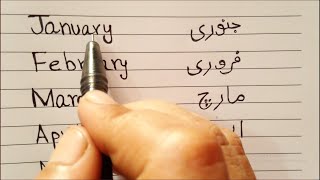 January جنوری
February فروری
March مارچ